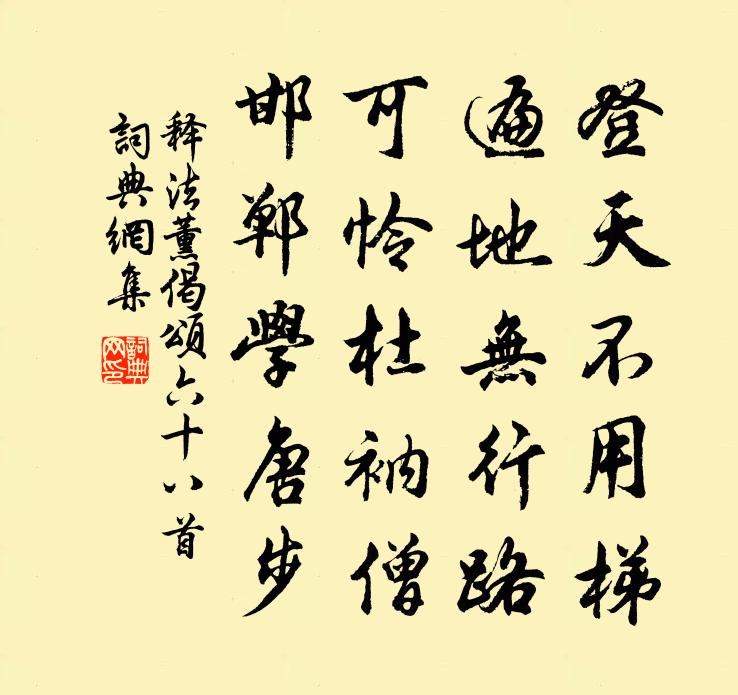 登天不用梯
遍地無行路
可怜杜衲僧
邯鄲學唐步
释法薰偈頌六十八首
詞典網集
詞典网印